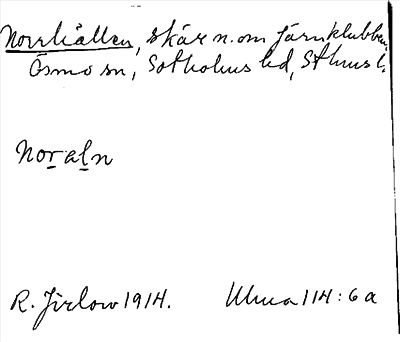 Norrhällen, skär n. om Järnklubben,
Ösmo sn, Sotholms hd, Sthms l.
Noraln
R. Jirlow 1914.  Ulma 114:6a